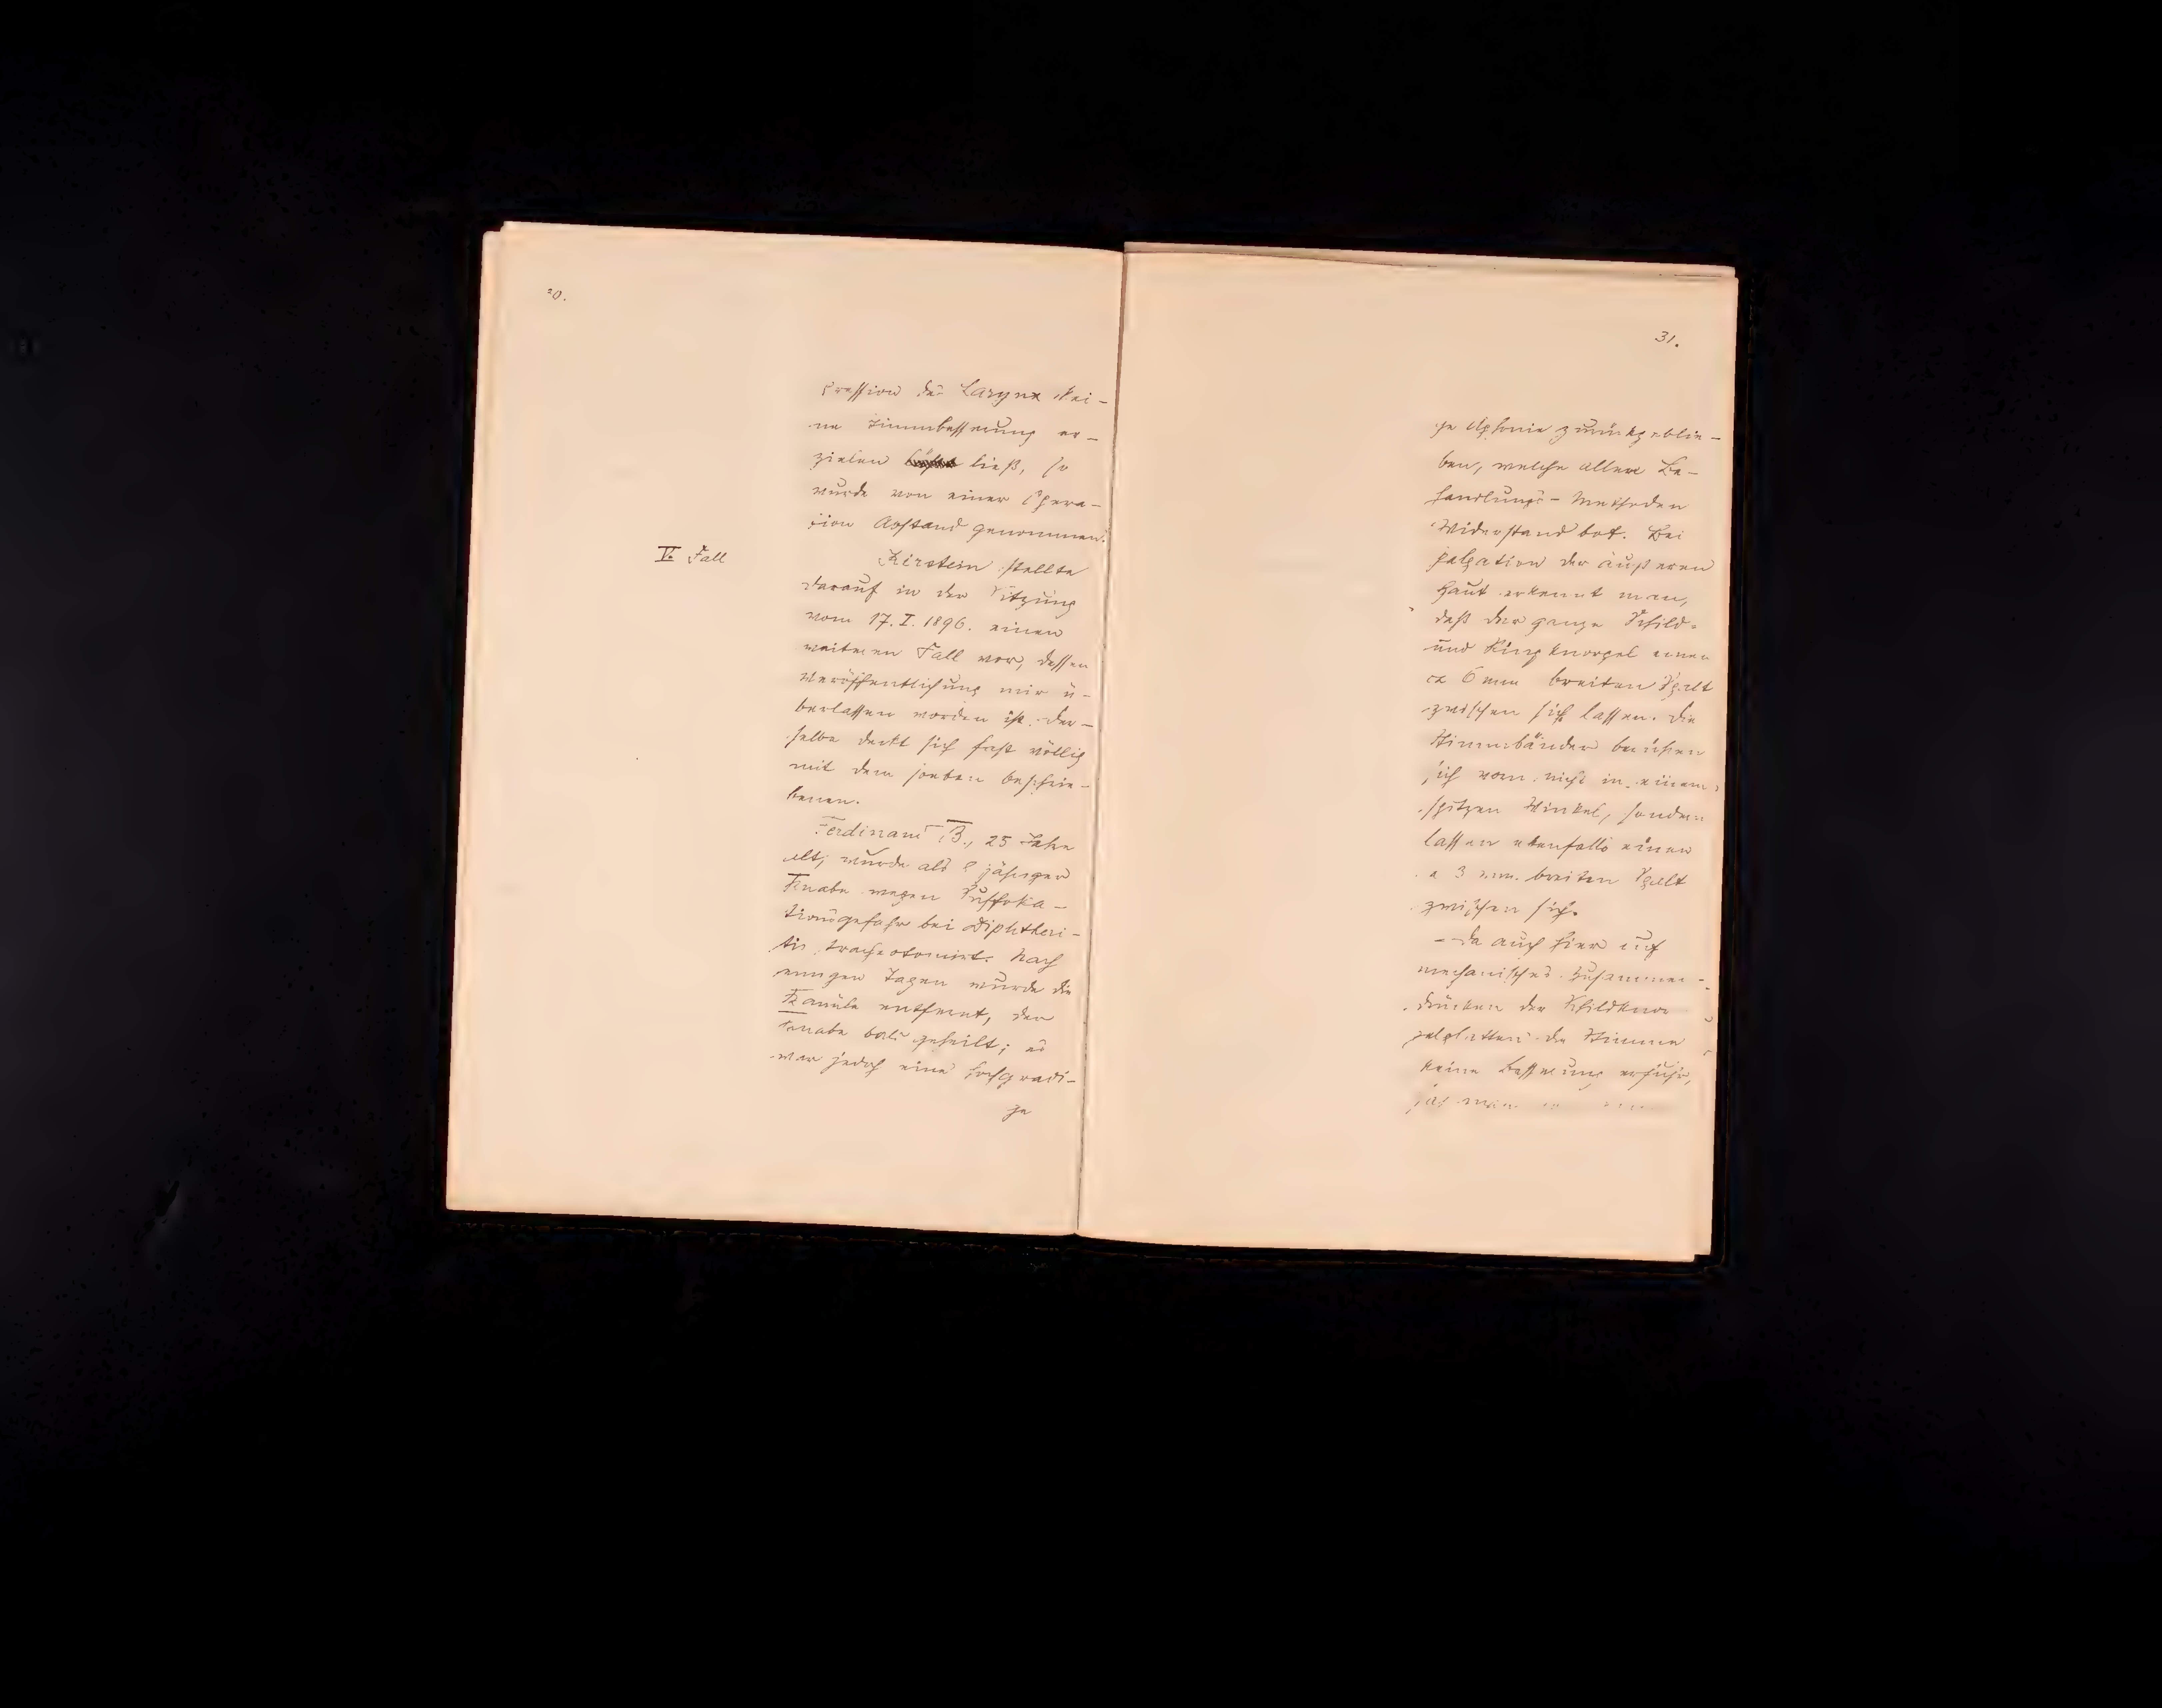 30.
pression des Larynx kei-
ne Stimmbesserung er-
zielen ließ, so
wurde von einer Opera-
tion Abstand genommen.
V. Fall
Kirstein stellte
darauf in der Sitzung
vom 17. I. 1896. einen
weiteren Fall vor, dessen
Veröffentlichung mir ü-
berlassen worden ist. Der-
selbe deckt sich fast völlig
mit dem soeben beschrie-
benen.
Ferdinand B., 25 Jahre
alt, wurde als 8 jähriger
Knabe wegen Suffoka-
tionsgefahr bei Diphtheri-
tis tracheotomirt. Nach
einigen Tagen wurde die
Kanüle entfernt, der
Knabe bald geheilt; es
war jedoch eine hochgradi-
ge
31.
ge Aphonie zurückgeblie-
ben, welche allen Be-
handlungs-Methoden
Widerstand bot. Bei
Palpation der äußeren
Haut erkennt man,
daß der ganze Schild-
und Ringknorpel einen
ca 6 mm breiten Spalt
zwischen sich lassen. Die
Stimmbänder berühren
sich vorn nicht in einem
spitzen Winkel, sondern
lassen ebenfalls einen
ca 3 mm. breiten Spalt
zwischen sich.
Da auch hier auf
mechanisches Zusammen-
drücken der Schildknor
pelplatten die Stimme
keine Besserung erfuhr,
man